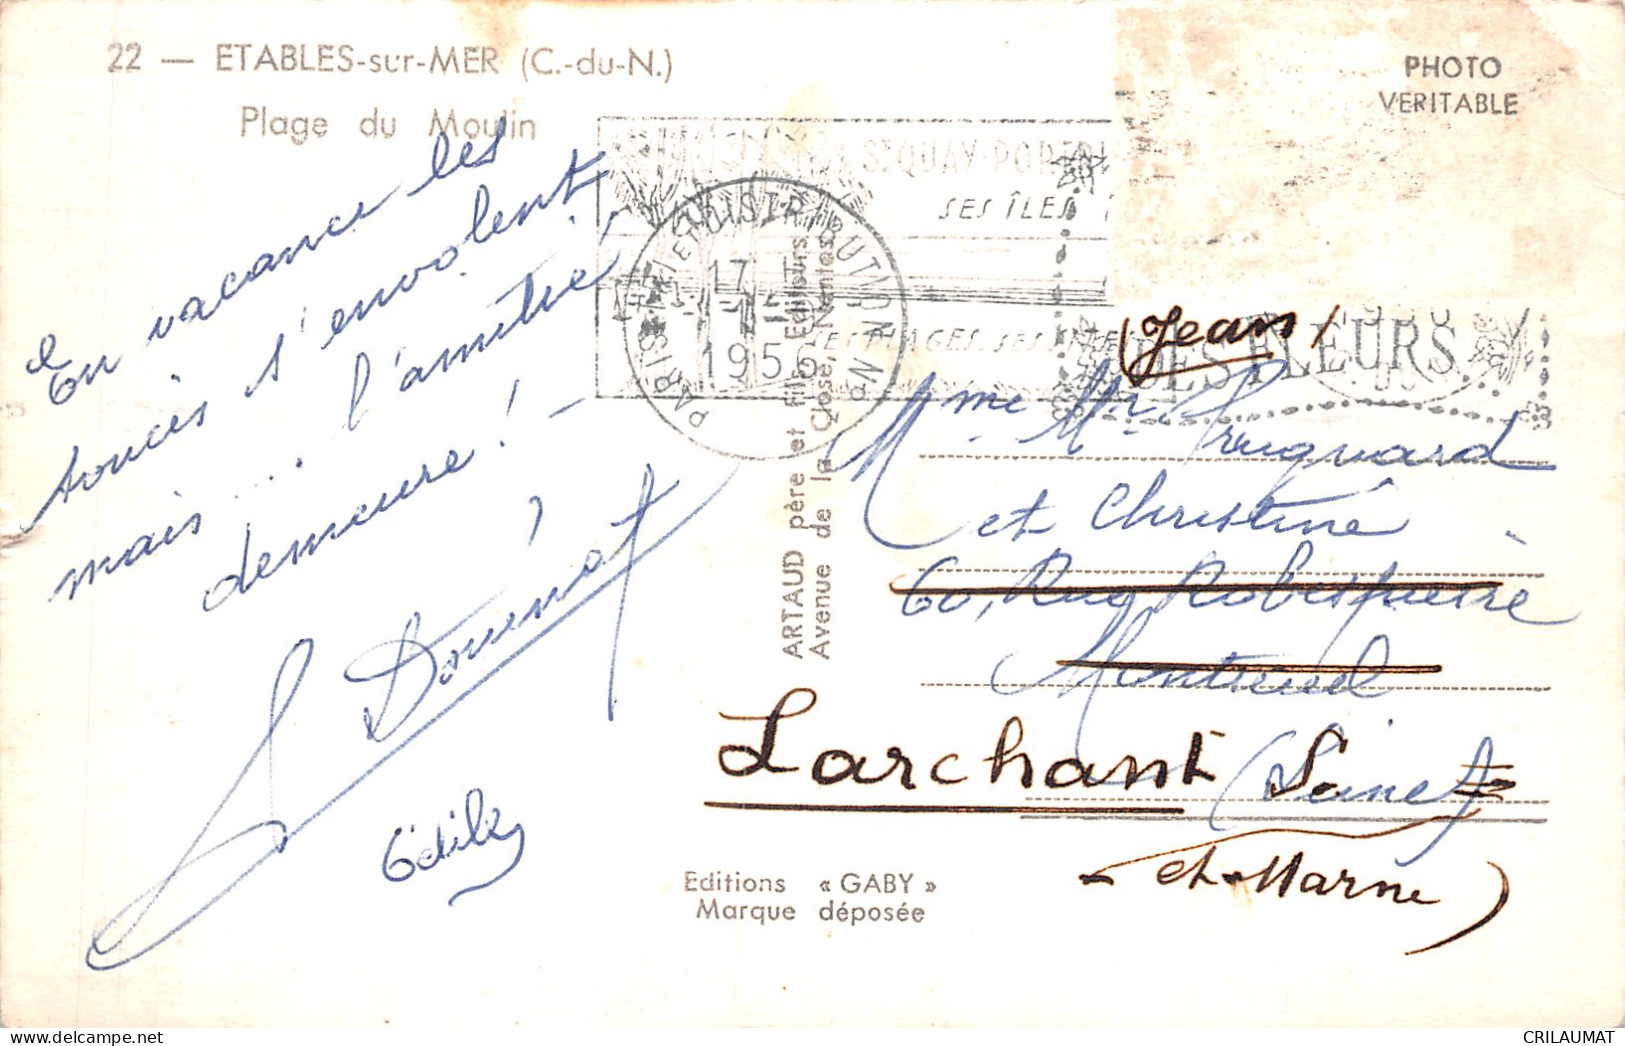 22 — ETABLES-sur-MER (C.-du-N.)
Plage du Moulin
PHOTO
VERITABLE
En vacance les
soucis s'envolent,
mais... l'amitié,
demeure! -
Dominat
Odile
ST QUAY-PORTRI
SES ÎLES
SES PLAGES. SES
PARIS TRI ET DISTRIBUTION PN
17 H
1956
DES FLEURS
ARTAUD père et fils, Editeurs
Avenue de la Close, Nantes
(Jean)
Mme Mr
et Christine
60, Rue Robespierre
Montreuil
Larchant (Seine)
et-Marne)
Editions « GABY »
Marque déposée
CRILAUMAT